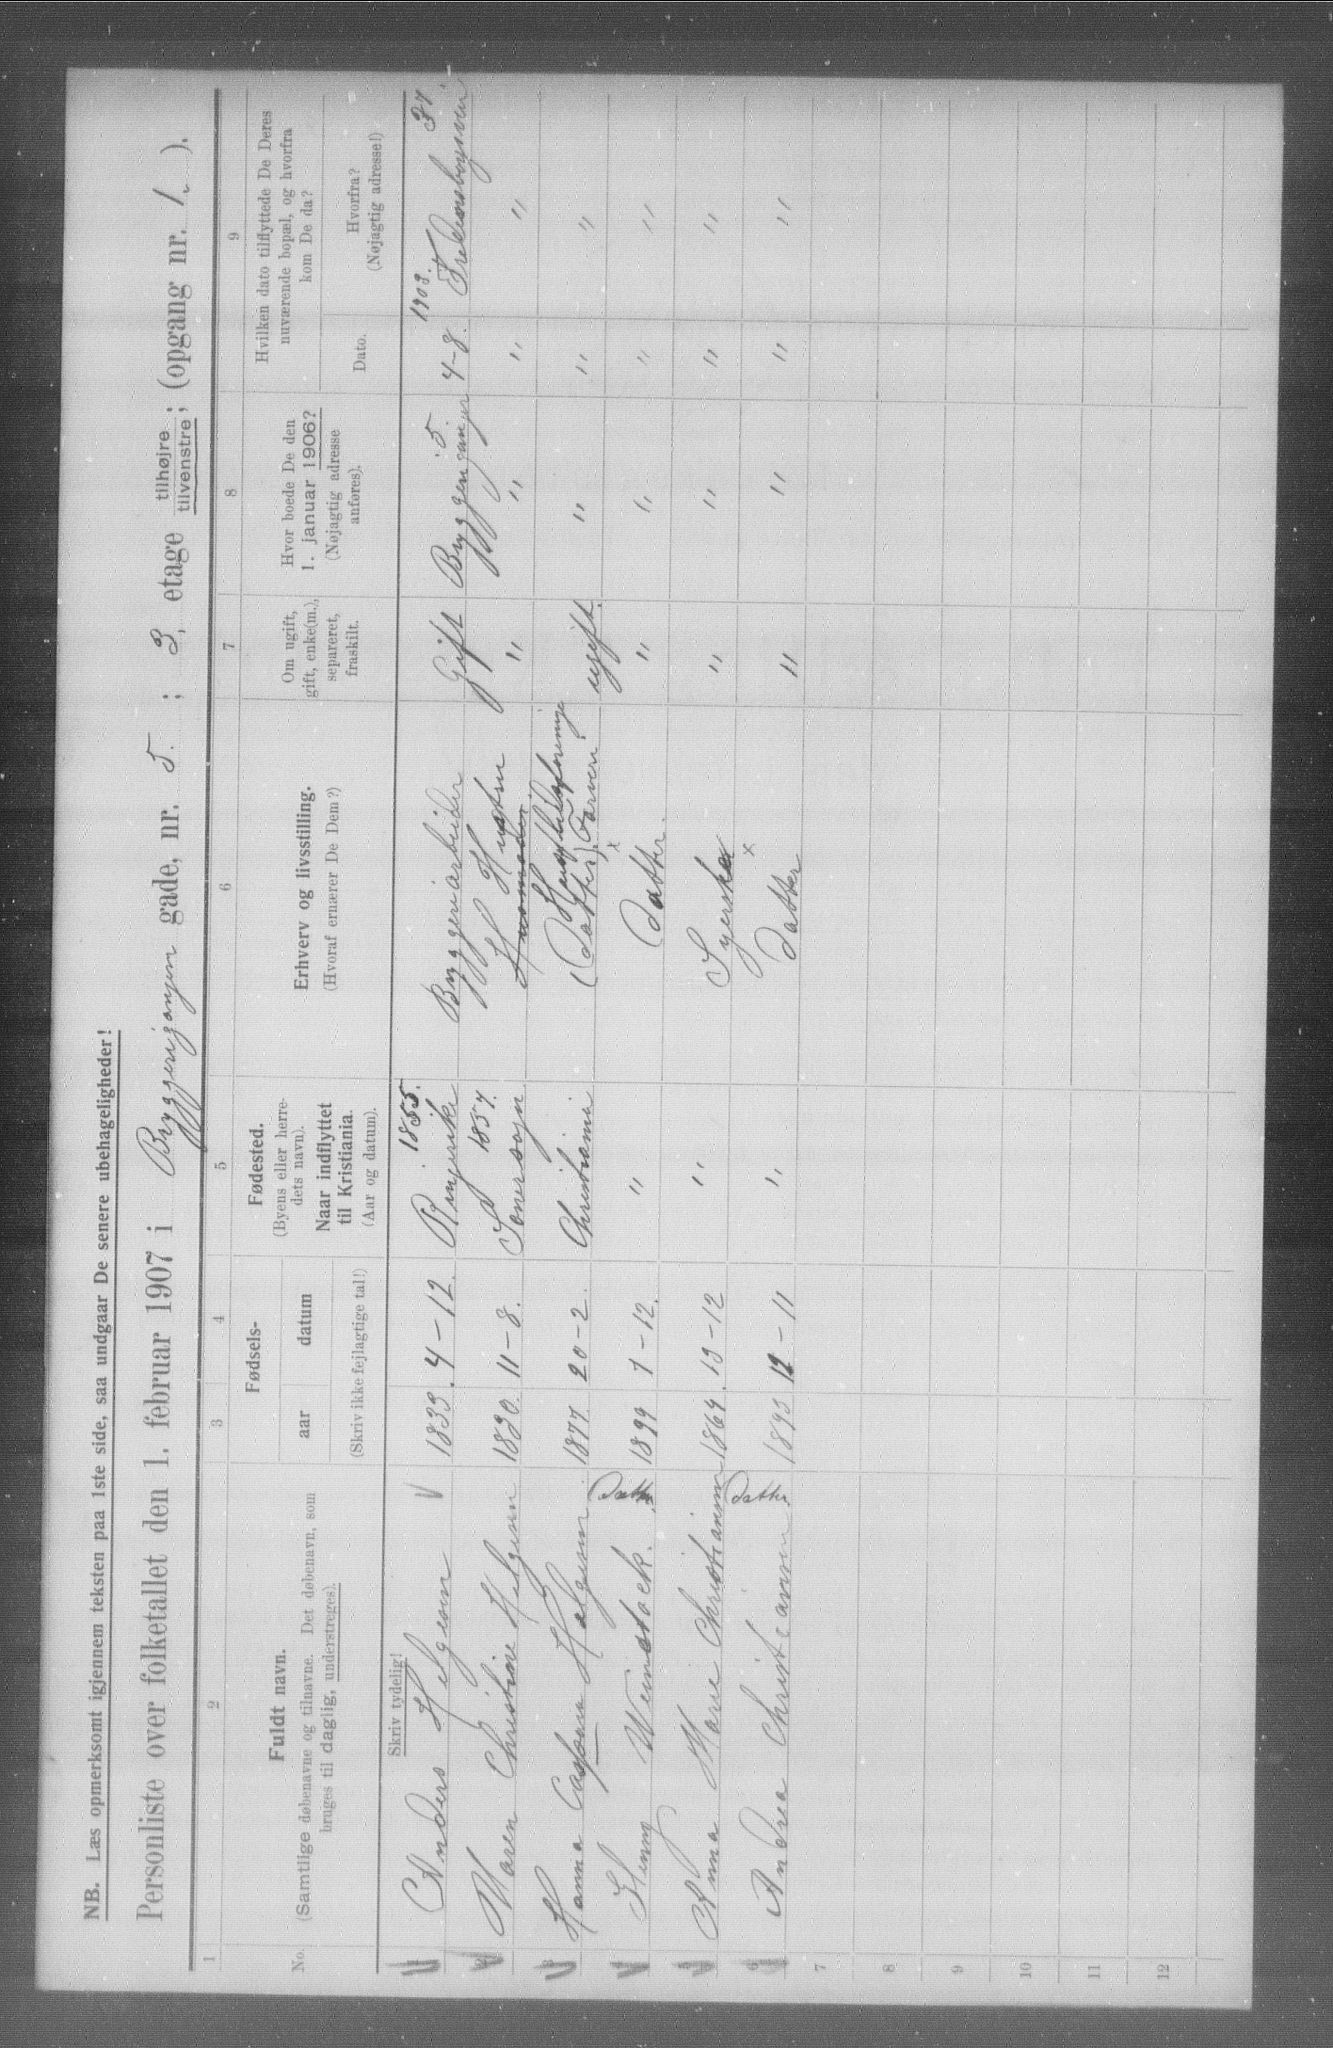 NB. Læs opmerksomt igjennem teksten paa 1ste side, saa undgaar De senere ubehageligheder!
Personliste over folketallet den 1. februar 1907 i Bryggerigangen gade, nr. 5. ; 3, etage tilhøjre tilvenstre; (opgang nr. 1. ).
1 2 3 4 5 6 7 8 9
No.
Fuldt navn.
(Samtlige døbenavne og tilnavne. Det døbenavn, som
bruges til daglig, understreges).
Fødsels-
aar datum
(Skriv ikke fejlagtige tal!)
Fødested.
(Byens eller herre-
dets navn).
Naar indflyttet
til Kristiania.
(Aar og datum).
Erhverv og livsstilling.
(Hvoraf ernærer De Dem?)
Om ugift,
gift, enke(m.),
separeret,
fraskilt.
Hvor boede De den
1. januar 1906?
(Nøjagtig adresse
anføres).
Hvilken dato tilflyttede De Deres
nuværende bopæl, og hvorfra
kom De da?
Dato.
Hvorfra?
(Nøjagtig adresse!)
Skriv tydelig!
1855. 5. 1903. 37.
Anders Helgesen 1833. 4-12. Ringerike Bryggeriarbeider Gift 4-8.
1857. Hustru
Maren Christine Helgesen 1830. 11-8. "  " " "
Hanna Helgesen 1877. 20-2. Christiania (Datter) Farveri ugift. " " "
Datter
Henny Weinstock. 1899 7-12. " Datter. " " " "
Anna Marie Christiansen 1864. 13-12 " Syerske " " " "
Datter
Andrea Christiansen. 1893 12-11 " Datter " " " "
7
8
9
10
11
12